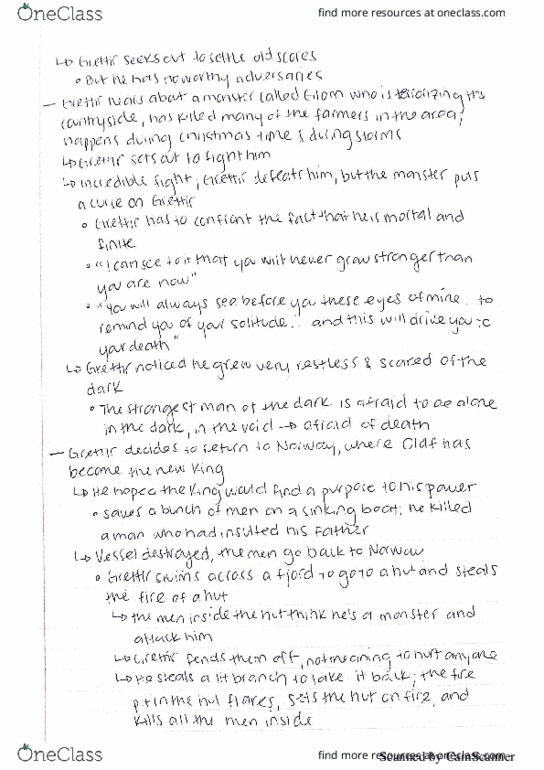 OneClass
find more resources at oneclass.com
↳ Grettir seeks out to settle old scores
• But he has no worthy adversaries
— Grettir hears about a monster called Glam who is terrorizing the
countryside, has killed many of the farmers in the area;
happens during Christmas time & during storms
↳ Grettir sets out to fight him
↳ Incredible fight; Grettir defeats him, but the monster puts
a curse on Grettir
• Grettir has to confront the fact that he is mortal and
finite
• "I can see to it that you will never grow stronger than
you are now"
• "you will always see before you these eyes of mine. to
remind you of your solitude... and this will drive you to
your death"
↳ Grettir noticed he grew very restless & scared of the
dark
• The strongest man of the dark is afraid to be alone
in the dark, in the void → afraid of death
— Grettir decides to return to Norway, where Olaf has
become the new King
↳ He hoped the King would find a purpose to his power
• saves a bunch of men on a sinking boat; he killed
a man who had insulted his Father
↳ Vessel destroyed, the men go back to Norway
• Grettir swims across a fjord to go to a hut and steals
the fire of a hut
↳ the men inside the hut think he's a monster and
attack him
↳ Grettir fends them off, not meaning to hurt anyone
↳ He steals a lit branch to take it back; the fire
pit in the hut flares, sets the hut on fire, and
kills all the men inside
OneClass
find more resources at oneclass.com
Scanned by CamScanner